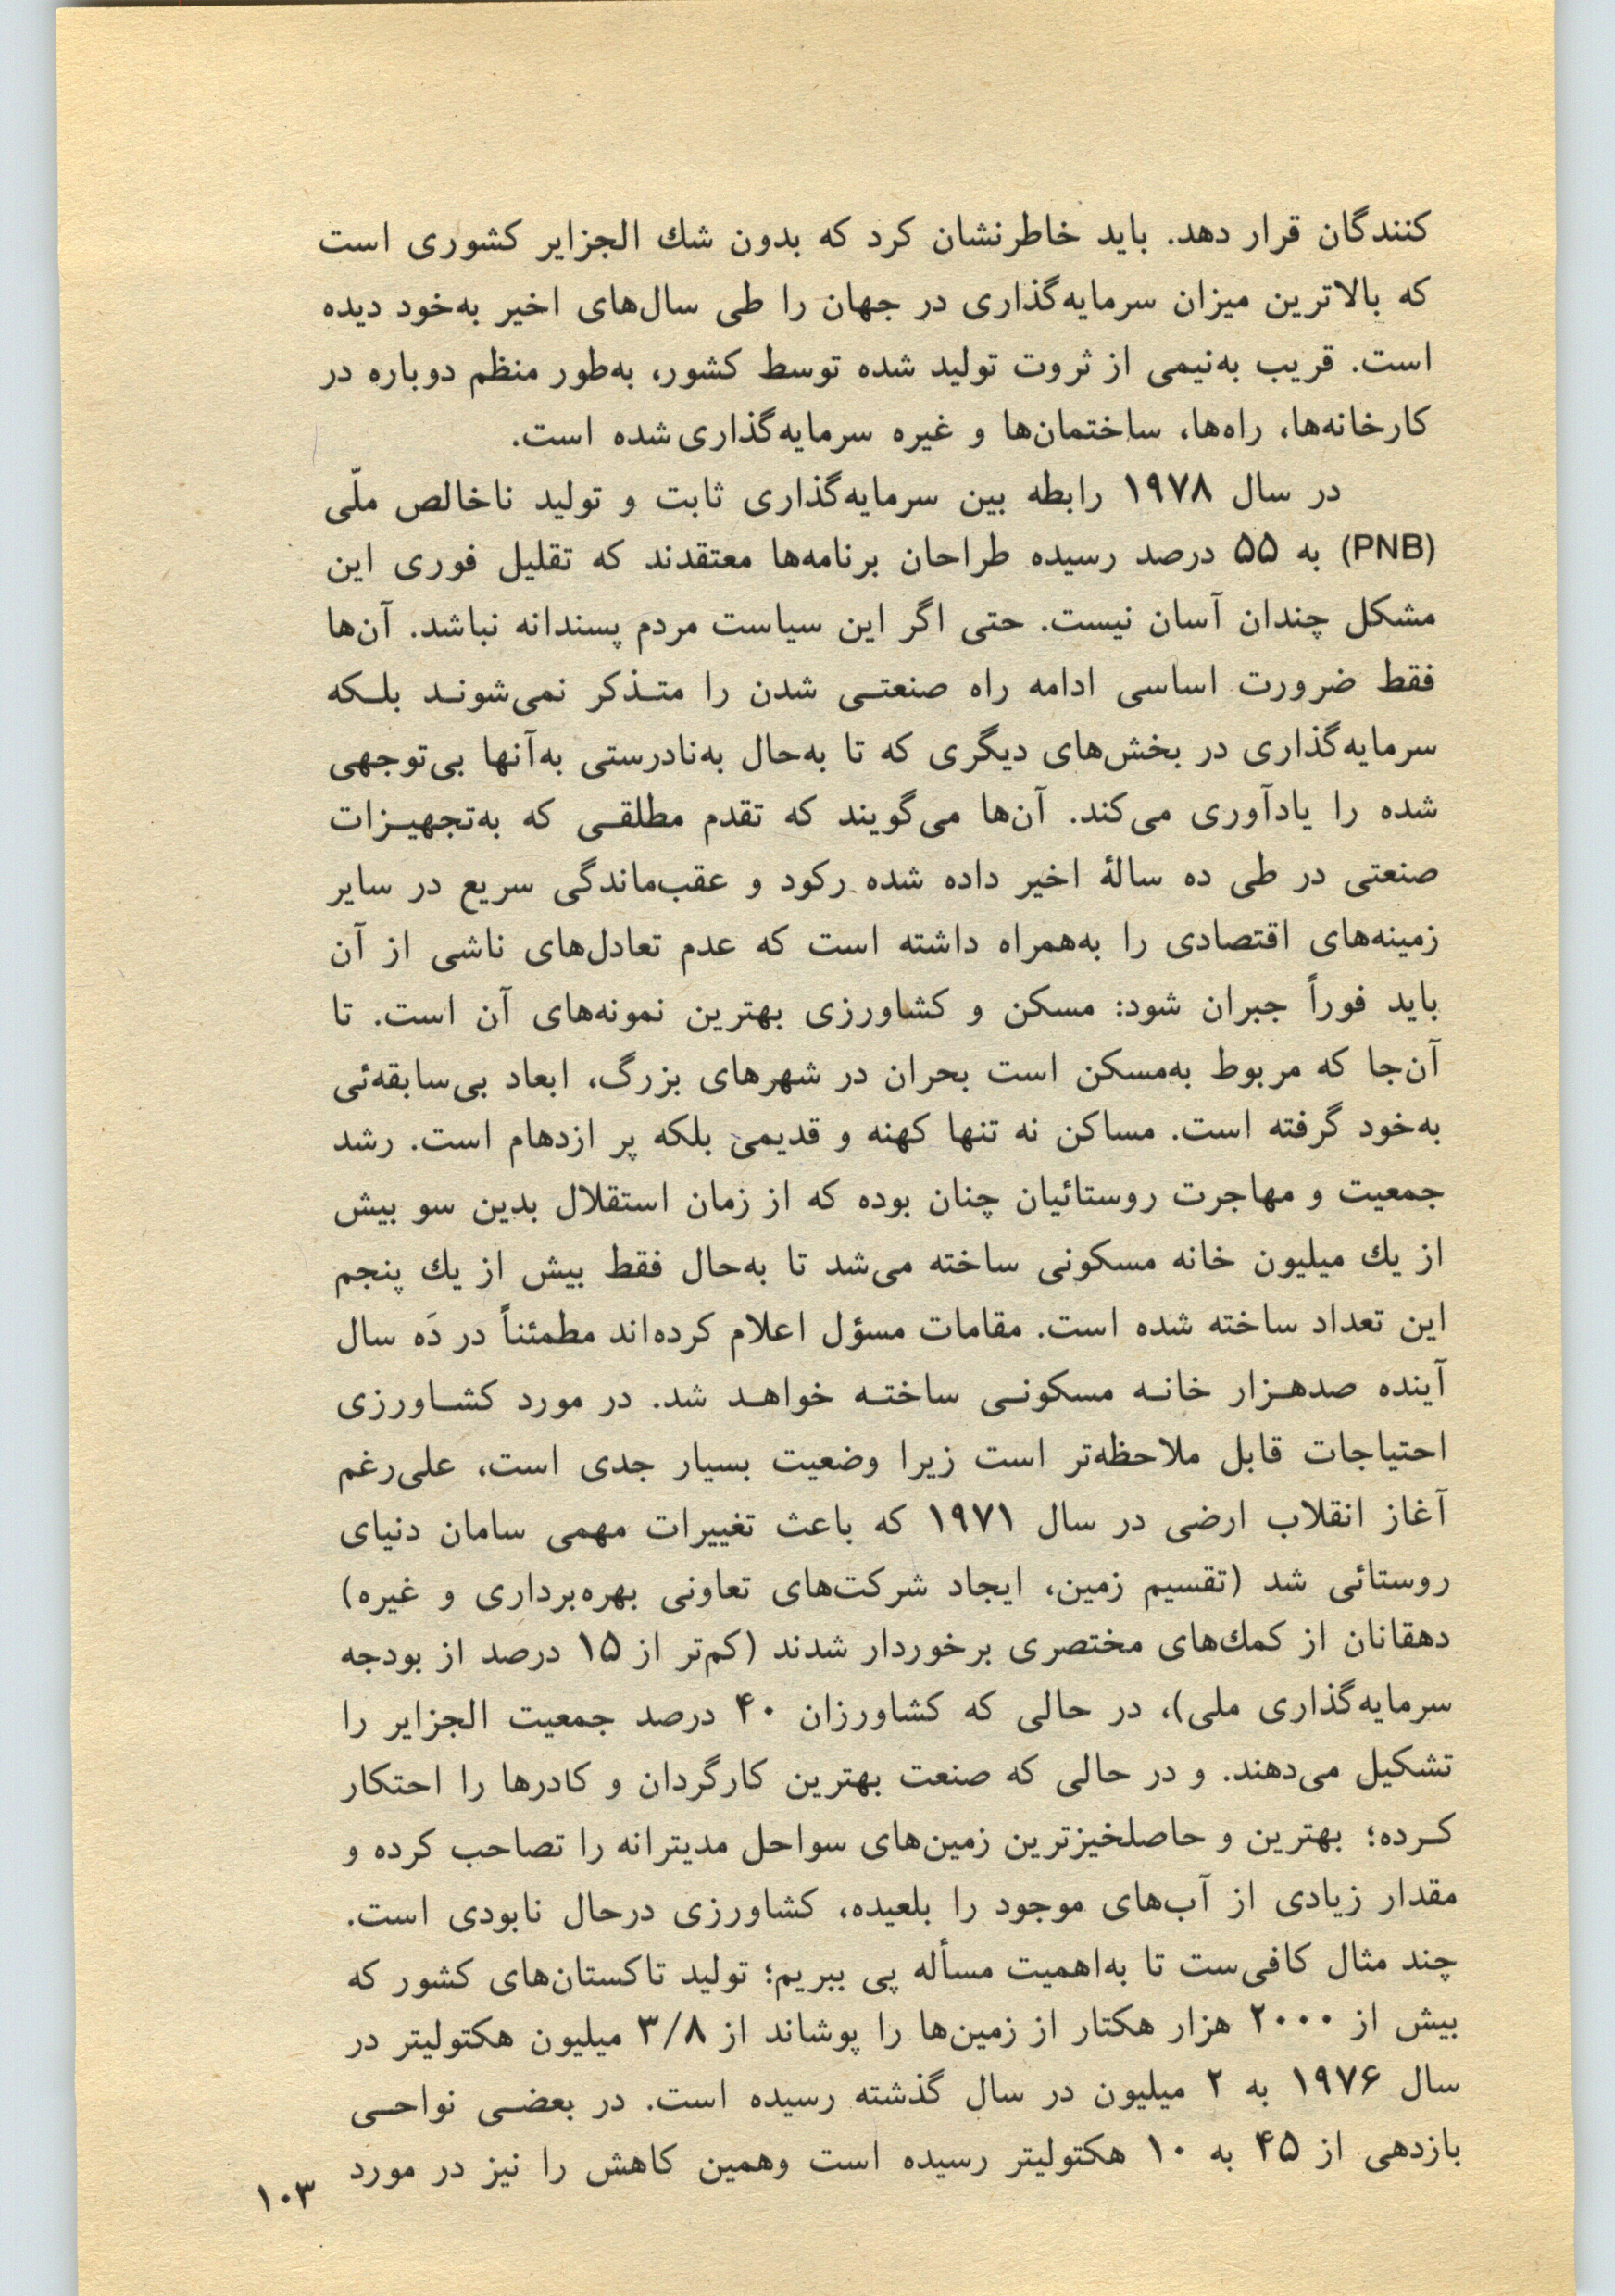 کنندگان قرار دهد. باید خاطرنشان کرد که بدون شك الجزایر کشوری است
که بالاترین میزان سرمایه‌گذاری در جهان را طی سال‌های اخیر به‌خود دیده
است. قریب به‌نیمی از ثروت تولید شده توسط کشور، به‌طور منظم دوباره در
کارخانه‌ها، راه‌ها، ساختمان‌ها و غیره سرمایه‌گذاری شده است.
در سال ۱۹۷۸ رابطه بین سرمایه‌گذاری ثابت و تولید ناخالص ملّی
(PNB) به ۵۵ درصد رسیده طراحان برنامه‌ها معتقدند که تقلیل فوری این
مشکل چندان آسان نیست. حتی اگر این سیاست مردم پسندانه نباشد. آن‌ها
فقط ضرورت اساسی ادامه راه صنعتـی شدن را متـذکر نمی‌شونـد بلـکه
سرمایه‌گذاری در بخش‌های دیگری که تا به‌حال به‌نادرستی به‌آنها بی‌توجهی
شده را یادآوری می‌کند. آن‌ها می‌گویند که تقدم مطلقـی که به‌تجهیـزات
صنعتی در طی ده سالهٔ اخیر داده شده رکود و عقب‌ماندگی سریع در سایر
زمینه‌های اقتصادی را به‌همراه داشته است که عدم تعادل‌های ناشی از آن
باید فوراً جبران شود: مسکن و کشاورزی بهترین نمونه‌های آن است. تا
آن‌جا که مربوط به‌مسکن است بحران در شهرهای بزرگ، ابعاد بی‌سابقه‌ئی
به‌خود گرفته است. مساکن نه تنها کهنه و قدیمی بلکه پر ازدهام است. رشد
جمعیت و مهاجرت روستائیان چنان بوده که از زمان استقلال بدین سو بیش
از یك میلیون خانه مسکونی ساخته می‌شد تا به‌حال فقط بیش از یك پنجم
این تعداد ساخته شده است. مقامات مسؤل اعلام کرده‌اند مطمئناً در دَه سال
آینده صدهـزار خانـه مسکونـی ساختـه خواهـد شد. در مورد کشـاورزی
احتیاجات قابل ملاحظه‌تر است زیرا وضعیت بسیار جدی است، علی‌رغم
آغاز انقلاب ارضی در سال ۱۹۷۱ که باعث تغییرات مهمی سامان دنیای
روستائی شد (تقسیم زمین، ایجاد شرکت‌های تعاونی بهره‌برداری و غیره)
دهقانان از کمك‌های مختصری برخوردار شدند (کم‌تر از ۱۵ درصد از بودجه
سرمایه‌گذاری ملی)، در حالی که کشاورزان ۴۰ درصد جمعیت الجزایر را
تشکیل می‌دهند. و در حالی که صنعت بهترین کارگردان و کادرها را احتکار
کـرده؛ بهترین و حاصلخیزترین زمین‌های سواحل مدیترانه را تصاحب کرده و
مقدار زیادی از آب‌های موجود را بلعیده، کشاورزی درحال نابودی است.
چند مثال کافی‌ست تا به‌اهمیت مسأله پی ببریم؛ تولید تاکستان‌های کشور که
بیش از ۲۰۰۰ هزار هکتار از زمین‌ها را پوشاند از ۳/۸ میلیون هکتولیتر در
سال ۱۹۷۶ به ۲ میلیون در سال گذشته رسیده است. در بعضـی نواحـی
بازدهی از ۴۵ به ۱۰ هکتولیتر رسیده است وهمین کاهش را نیز در مورد
۱۰۳